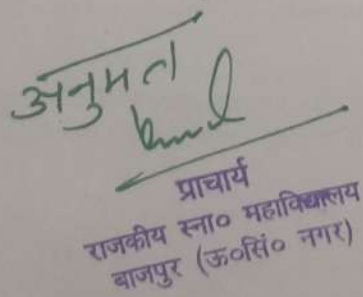 अनुमत
प्राचार्य
राजकीय स्ना० महाविद्यालय
बाजपुर (ऊ०सिं० नगर)